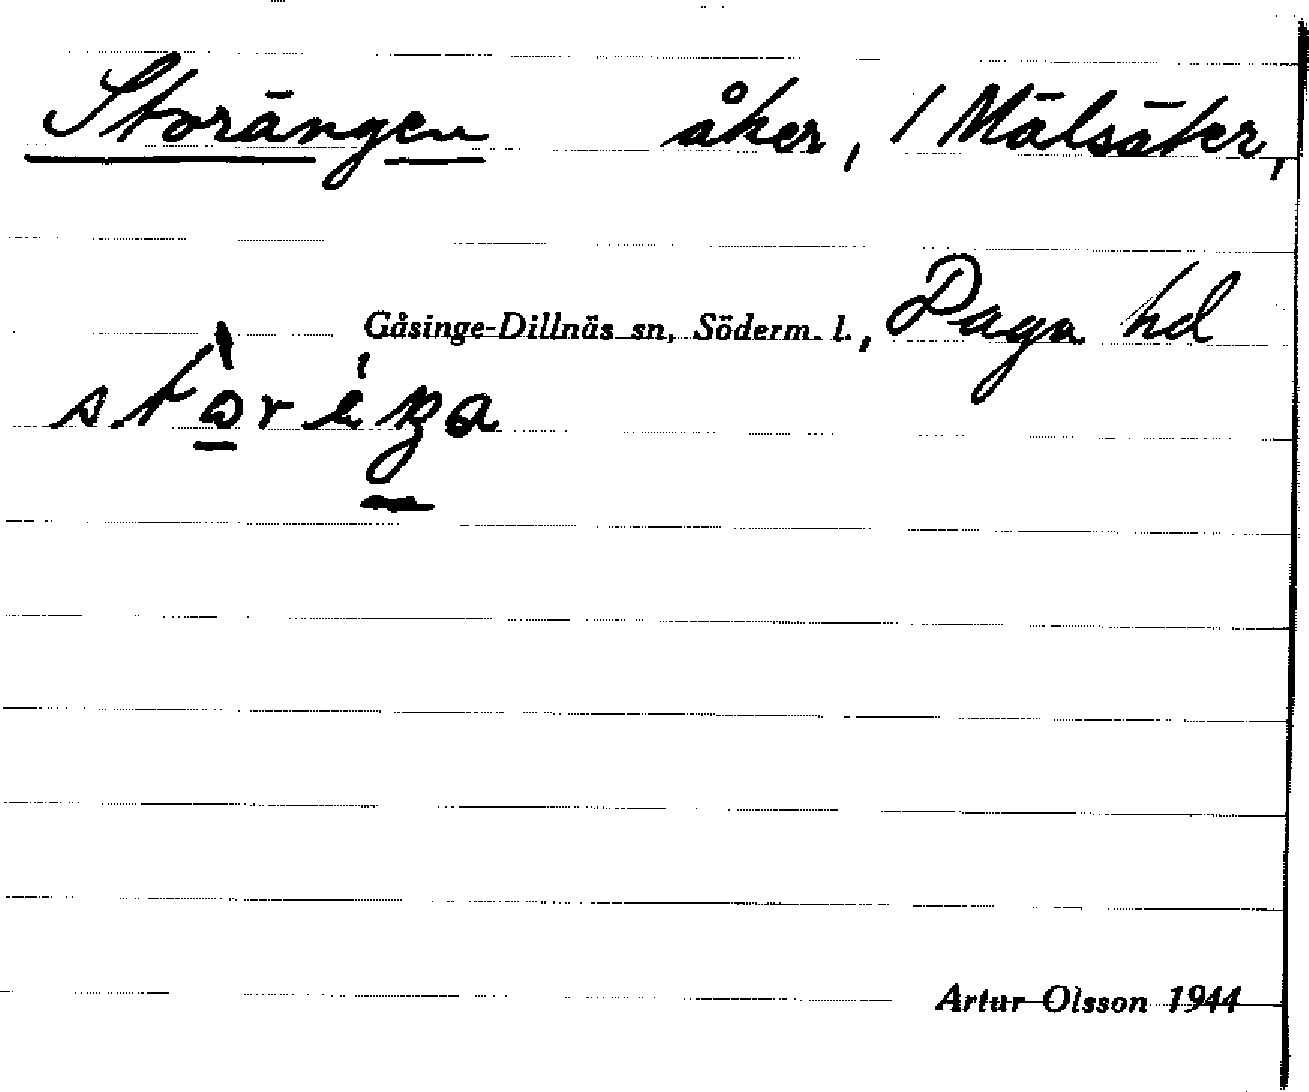 Storängen åker, / Mälsäker,
Gåsinge-Dillnäs sn, Söderm. l., Daga hd
Artur Olsson 1944